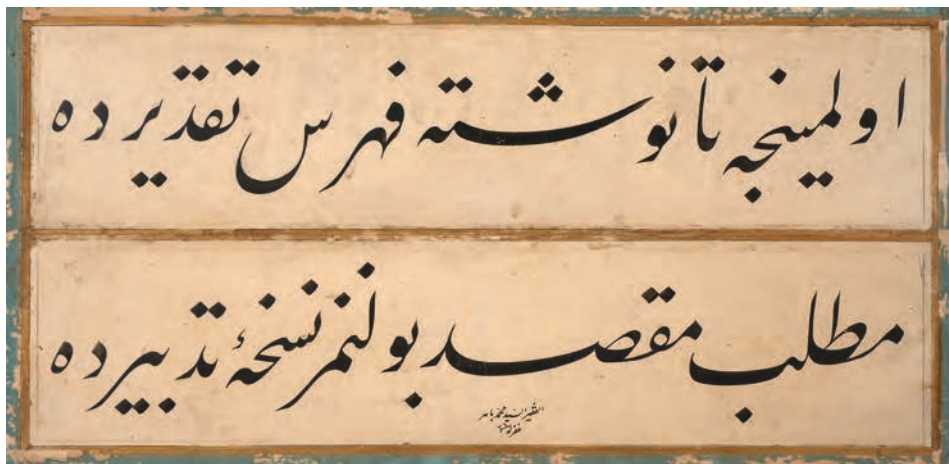 اولمینجه تا نوشته فهرس تقدیرده
مطلب مقصد بولنمز نسخهٔ تدبیرده
الفقیر السید محمد باهر
غفر له